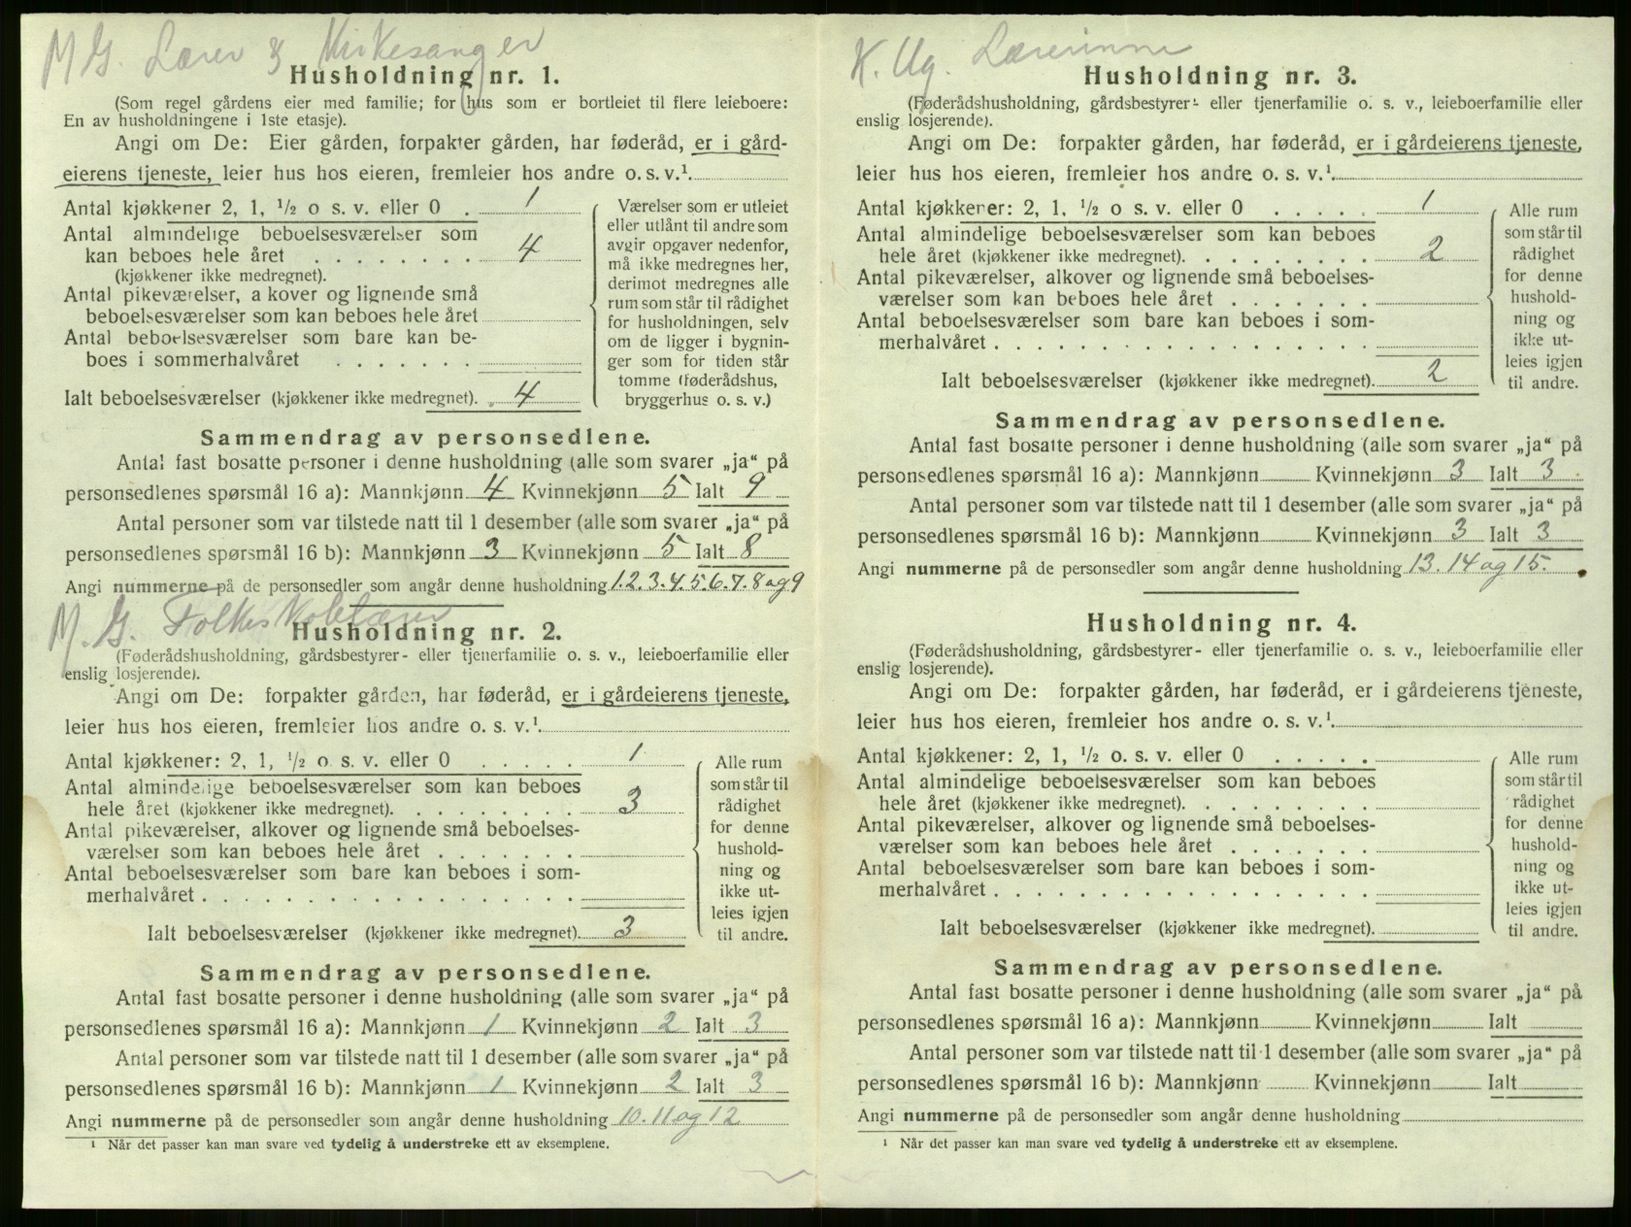 M G. Lærer & Kirkesanger
Husholdning nr. 1.
(Som regel gårdens eier med familie; for hus som er bortleiet til flere leieboere:
En av husholdningene i 1ste etasje).
Angi om De: Eier gården, forpakter gården, har føderåd, er i gård-
eierens tjeneste, leier hus hos eieren, fremleier hos andre o. s. v.¹
Antal kjøkkener 2, 1, ½ o s. v. eller 0 . 1
Antal almindelige beboelsesværelser som
kan beboes hele året . . . . . . . . 4
(kjøkkener ikke medregnet).
Antal pikeværelser, a kover og lignende små
beboelsesværelser som kan beboes hele året
Antal beboelsesværelser som bare kan be-
boes i sommerhalvåret . . . . . . .
Ialt beboelsesværelser (kjøkkener ikke medregnet). 4
Værelser som er utleiet
eller utlånt til andre som
avgir opgaver nedenfor,
må ikke medregnes her,
derimot medregnes alle
rum som står til rådighet
for husholdningen, selv
om de ligger i bygnin-
ger som for tiden står
tomme (føderådshus,
bryggerhus o. s. v.)
Sammendrag av personsedlene.
Antal fast bosatte personer i denne husholdning (alle som svarer „ja“ på
personsedlenes spørsmål 16 a): Mannkjønn 4 Kvinnekjønn 5 Ialt 9
Antal personer som var tilstede natt til 1 desember (alle som svarer „ja“ på
personsedlenes spørsmål 16 b): Mannkjønn 3 Kvinnekjønn 5 Ialt 8
Angi nummerne på de personsedler som angår denne husholdning 1.2.3.4.5.6.7.8 og 9
M. G. Folkeskolelærer
Husholdning nr. 2.
(Føderådshusholdning, gårdsbestyrer- eller tjenerfamilie o. s. v., leieboerfamilie eller
enslig losjerende).
Angi om De: forpakter gården, har føderåd, er i gårdeierens tjeneste,
leier hus hos eieren, fremleier hos andre o. s. v.¹
Antal kjøkkener: 2, 1, ½ o s. v. eller 0 . . . . . 1
Antal almindelige beboelsesværelser som kan beboes
hele året (kjøkkener ikke medregnet). . . . . . . . . 3
Antal pikeværelser, alkover og lignende små beboelses-
værelser som kan beboes hele året . . . . . . .
Antal beboelsesværelser som bare kan beboes i som-
merhalvåret . . . . . . . . . . . . . . . . . .
Ialt beboelsesværelser (kjøkkener ikke medregnet). 3
Alle rum
som står til
rådighet
for denne
hushold-
ning og
ikke ut-
leies igjen
til andre.
Sammendrag av personsedlene.
Antal fast bosatte personer i denne husholdning (alle som svarer „ja“ på
personsedlenes spørsmål 16 a): Mannkjønn 1 Kvinnekjønn 2 Ialt 3
Antal personer som var tilstede natt til 1 desember (alle som svarer „ja“ på
personsedlenes spørsmål 16 b): Mannkjønn 1 Kvinnekjønn 2 Ialt 3
Angi nummerne på de personsedler som angår denne husholdning 10. 11 og 12
¹ Når det passer kan man svare ved tydelig å understreke ett av eksemplene.
K. Ug. Lærerinne
Husholdning nr. 3.
(Føderådshusholdning, gårdsbestyrer- eller tjenerfamilie o. s. v., leieboerfamilie eller
enslig losjerende).
Angi om De: forpakter gården, har føderåd, er i gårdeierens tjeneste,
leier hus hos eieren, fremleier hos andre o. s. v.¹
Antal kjøkkener: 2, 1, ½ o s. v. eller 0 . . . . . 1
Antal almindelige beboelsesværelser som kan beboes
hele året (kjøkkener ikke medregnet). . . . . . . . . 2
Antal pikeværelser, alkover og lignende små beboelses-
værelser som kan beboes hele året . . . . . . .
Antal beboelsesværelser som bare kan beboes i som-
merhalvåret . . . . . . . . . . . . . . . . . .
Ialt beboelsesværelser (kjøkkener ikke medregnet). 2
Alle rum
som står til
rådighet
for denne
hushold-
ning og
ikke ut-
leies igjen
til andre.
Sammendrag av personsedlene.
Antal fast bosatte personer i denne husholdning (alle som svarer „ja“ på
personsedlenes spørsmål 16 a): Mannkjønn Kvinnekjønn 3 Ialt 3
Antal personer som var tilstede natt til 1 desember (alle som svarer „ja“ på
personsedlenes spørsmål 16 b): Mannkjønn Kvinnekjønn 3 Ialt 3
Angi nummerne på de personsedler som angår denne husholdning 13. 14 og 15.
Husholdning nr. 4.
(Føderådshusholdning, gårdsbestyrer- eller tjenerfamilie o. s. v., leieboerfamilie eller
enslig losjerende).
Angi om De: forpakter gården, har føderåd, er i gårdeierens tjeneste,
leier hus hos eieren, fremleier hos andre o. s. v.¹
Antal kjøkkener: 2, 1, ½ o. s. v. eller 0 . . . . .
Antal almindelige beboelsesværelser som kan beboes
hele året (kjøkkener ikke medregnet). . . . . . . . .
Antal pikeværelser, alkover og lignende små beboelses-
værelser som kan beboes hele året . . . . . . .
Antal beboelsesværelser som bare kan beboes i som-
merhalvåret . . . . . . . . . . . . . . . . . .
Ialt beboelsesværelser (kjøkkener ikke medregnet).
Alle rum
som står til
rådighet
for denne
hushold-
ning og
ikke ut-
leies igjen
til andre.
Sammendrag av personsedlene.
Antal fast bosatte personer i denne husholdning (alle som svarer „ja“ på
personsedlenes spørsmål 16 a): Mannkjønn Kvinnekjønn Ialt
Antal personer som var tilstede natt til 1 desember (alle som svarer „ja“ på
personsedlenes spørsmål 16 b): Mannkjønn Kvinnekjønn Ialt
Angi nummerne på de personsedler som angår denne husholdning
¹ Når det passer kan man svare ved tydelig å understreke ett av eksemplene.